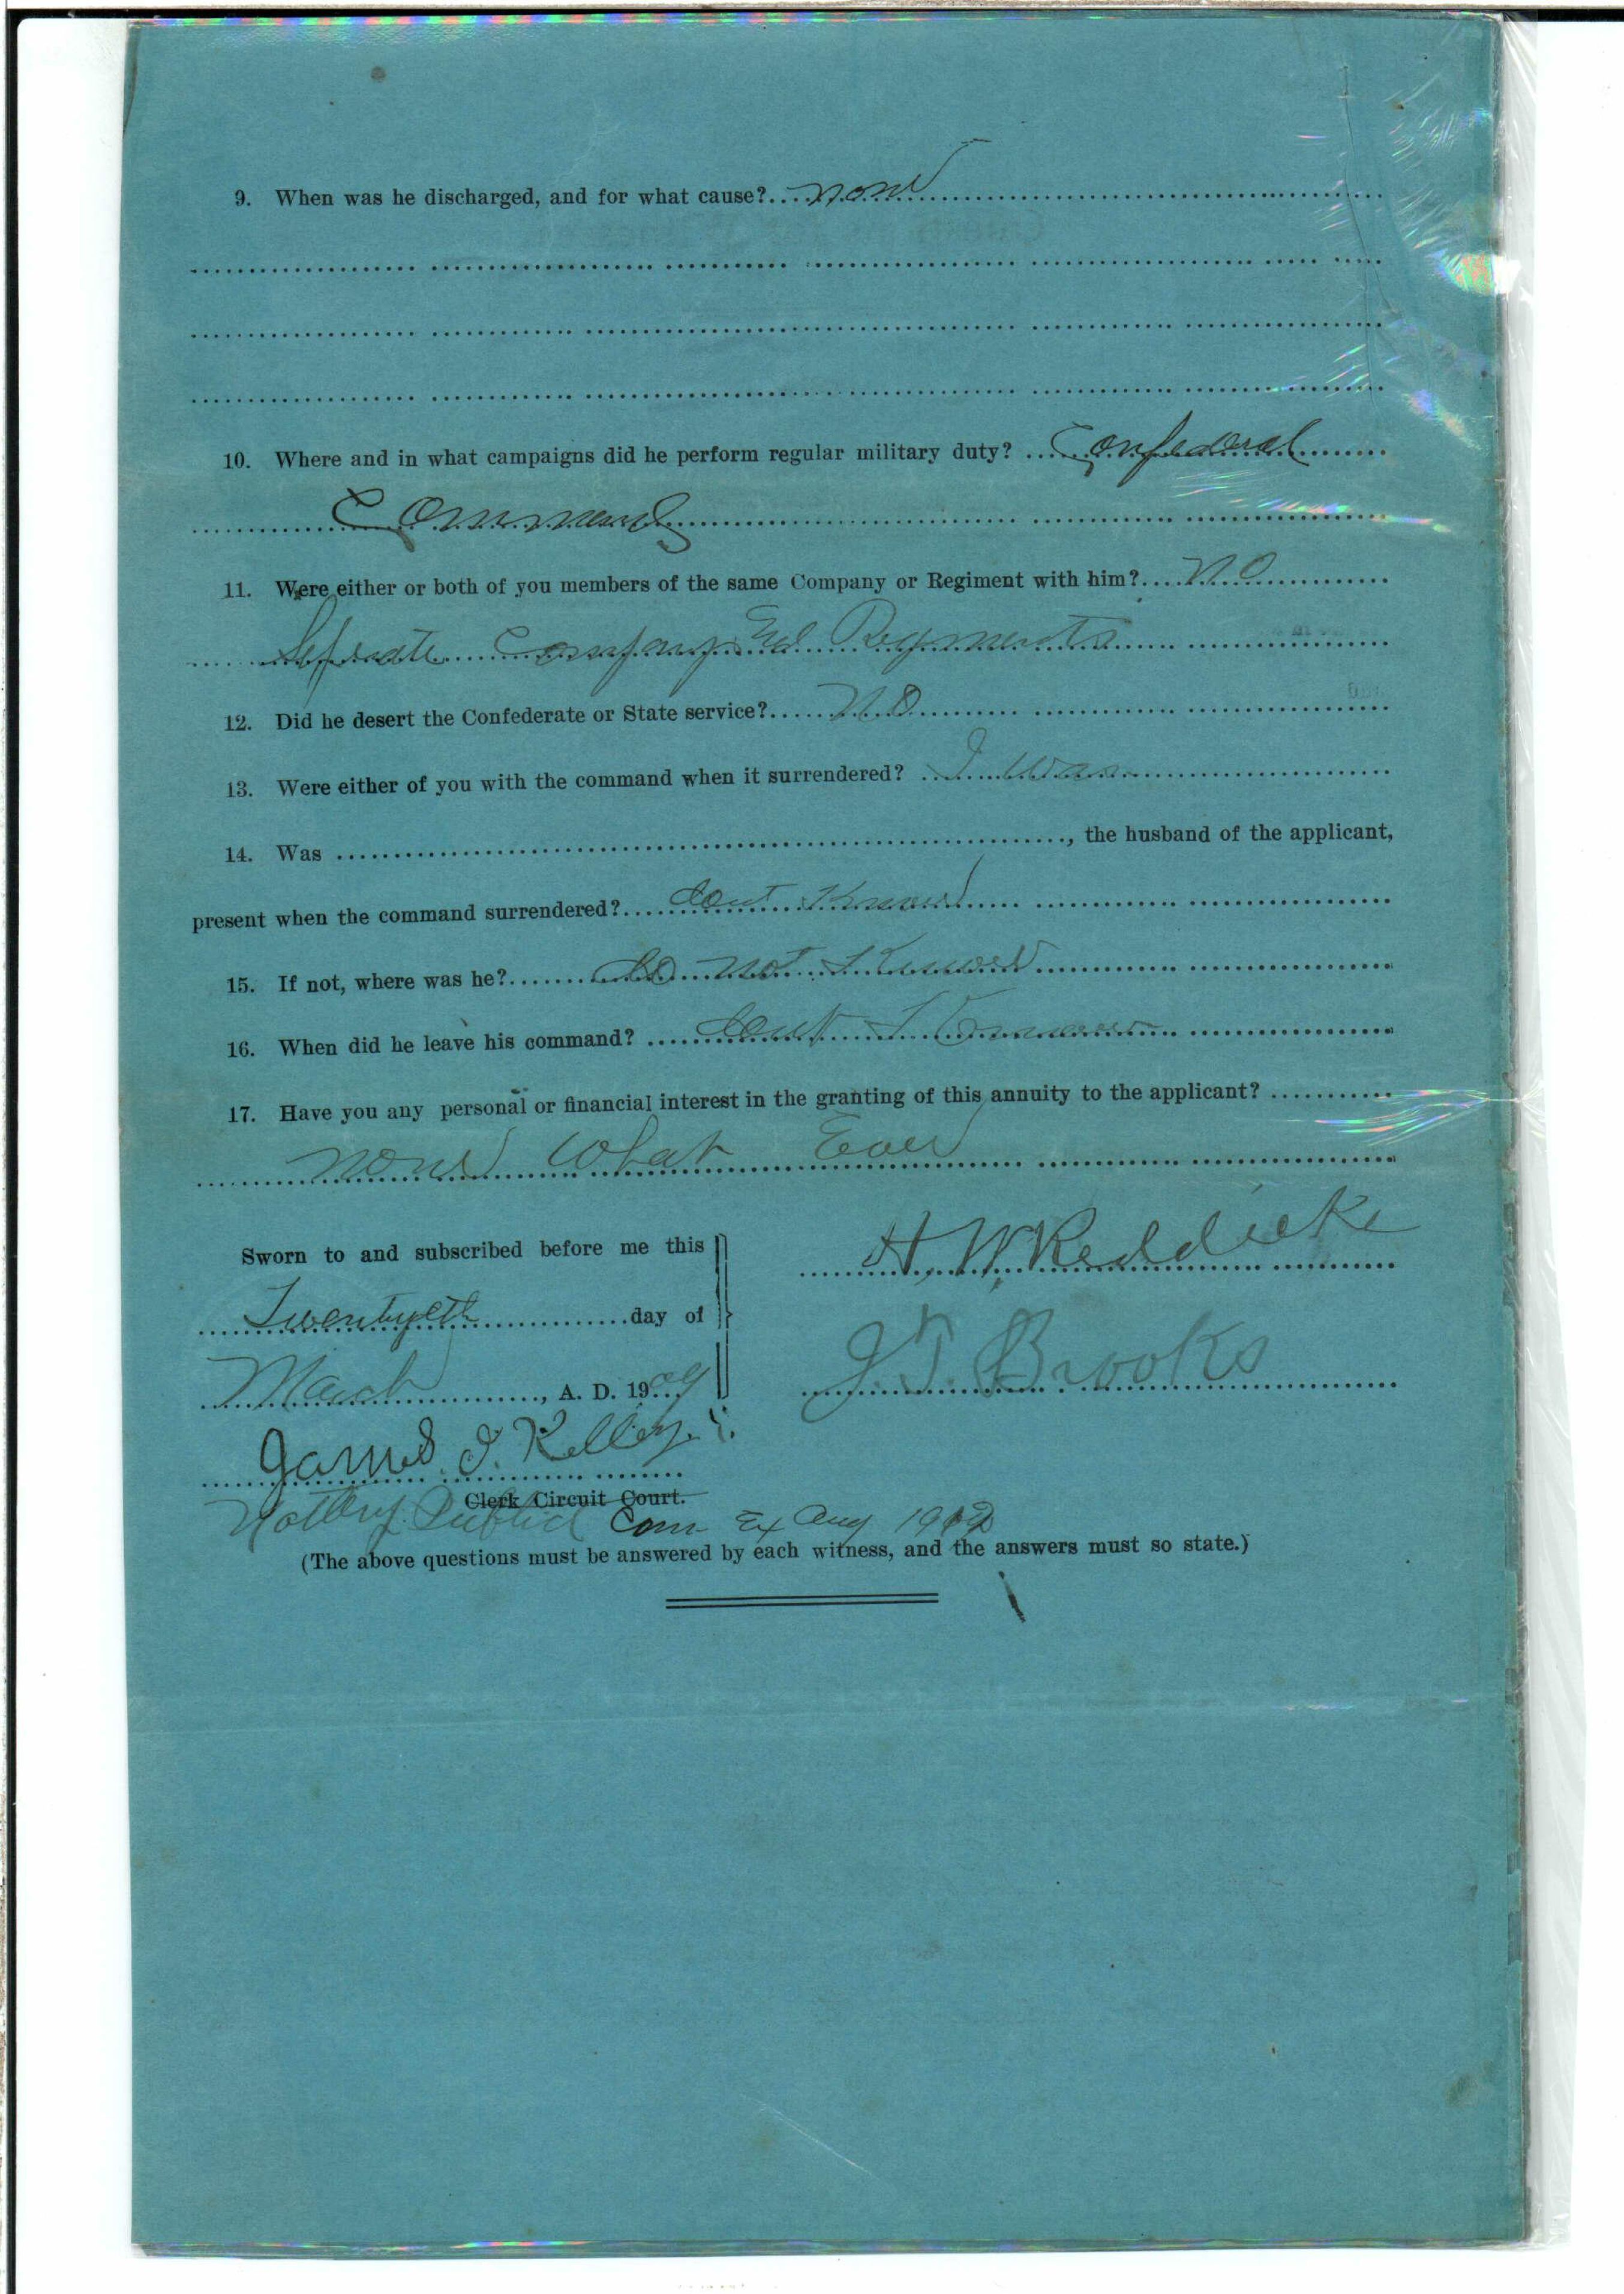 9. When was he discharged, and for what cause? none
10. Where and in what campaigns did he perform regular military duty? Confederal
Command
11. Were either or both of you members of the same Company or Regiment with him? No
Company Regments
12. Did he desert the Confederate or State service? No
13. Were either of you with the command when it surrendered? I was
14. Was , the husband of the applicant,
present when the command surrendered? dont Know
15. If not, where was he? do not Know
16. When did he leave his command? dont Know
17. Have you any personal or financial interest in the granting of this annuity to the applicant?
none what Ever
Sworn to and subscribed before me this
Twentyeth day of
March, A. D. 1909
H. W. Reddicke
J. T. Brooks
James J. Kelley
Clerk Circuit Court.
Notary Public Com Ex Aug 1912
(The above questions must be answered by each witness, and the answers must so state.)